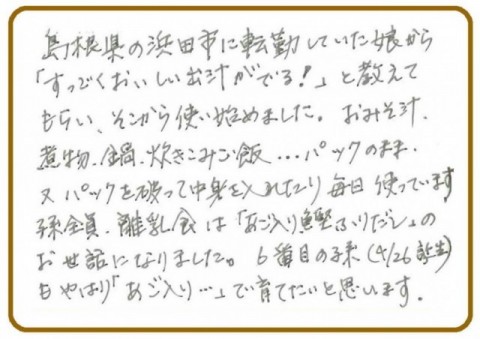 島根県の浜田市に転勤していた娘から
「すっごくおいしい出汁がでる!」と教えて
もらい、そこから使い始めました。おみそ汁、
煮物、鍋、炊きこみご飯…パックのまま、
又パックを破って中身を入れたり毎日使っています
孫全員、離乳食は「あご入り鰹ふりだし」の
お世話になりました。6番目の孫(4/26誕生)
もやはり「あご入り…」で育てたいと思います。